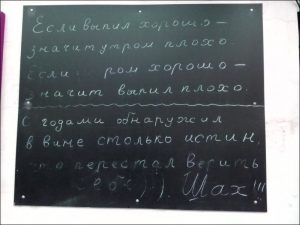 Если выпил хорошо –
значит утром плохо.
Если ром хорошо –
значит выпил плохо.
С годами обнаружил
в вине столько истин,
что перестал верить
Шах!!!